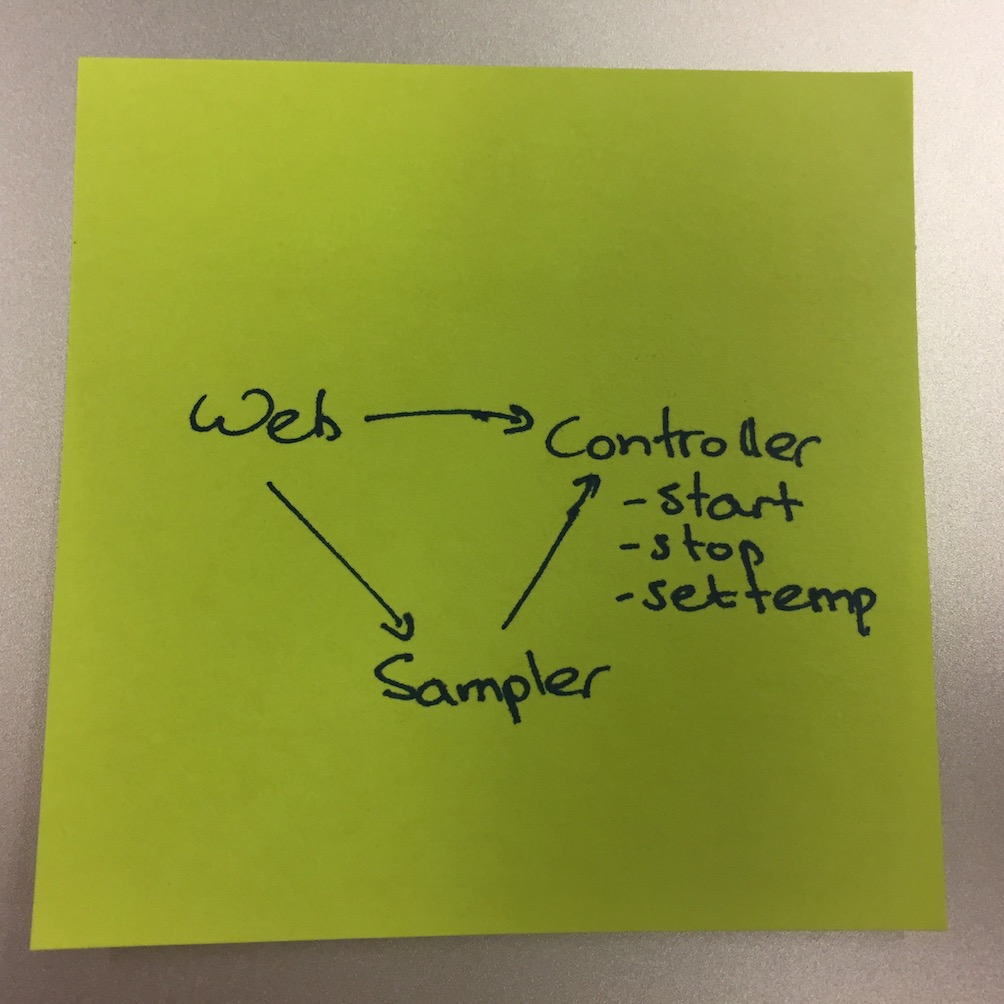 Web
Controller
-start
-stop
-settemp
Sampler